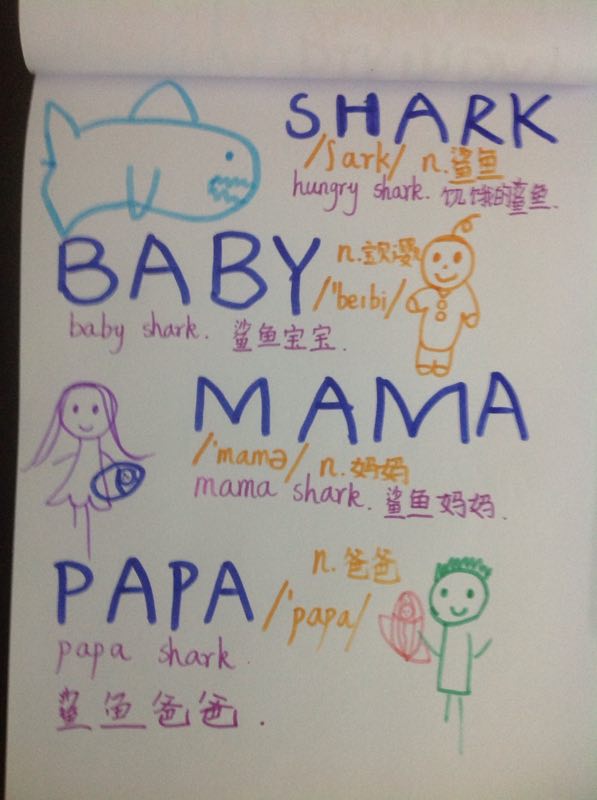 SHARK
/ʃark/ n. 鲨鱼
hungry shark. 饥饿的鲨鱼.
BABY
n.
/'beɪbi/
baby shark. 鲨鱼宝宝.
MAMA
/'mamə/ n. 妈妈
mama shark. 鲨鱼妈妈.
PAPA
n. 爸爸
/'papa/
papa shark
鲨鱼爸爸.